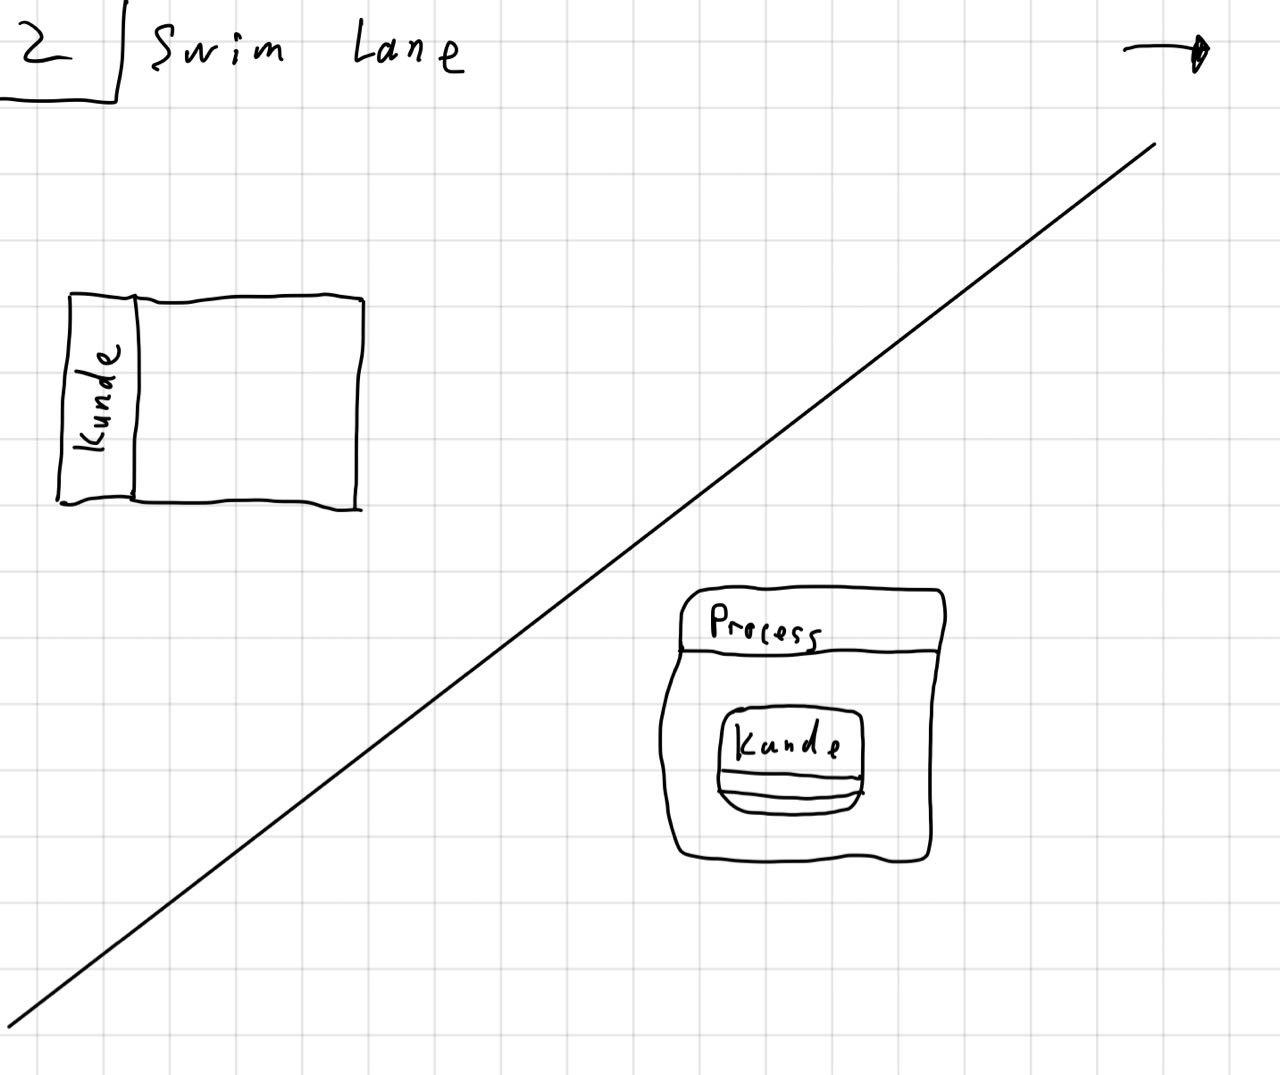 2 Swim Lane
Kunde
Process
Kunde